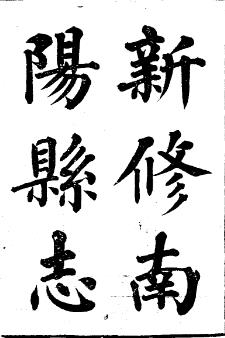 新修南
陽縣志